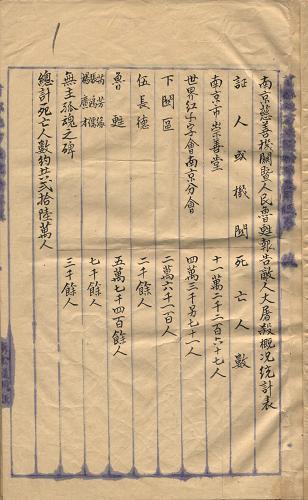 南京慈善機關暨人民魯甦報告敵人大屠殺概況統計表
証人或機關 死亡人數
南京市崇善堂 十一萬二千二百六十七人
世界紅卍字會南京分會 四萬三千另七十一人
下關區 二萬六千一百人
伍長德 二千餘人
魯甦 五萬七千四百餘人
芮芳緣 張鴻儒 楊廣才 七千餘人
無主孤魂之碑 三千餘人
總計死亡人數約共貳拾陸萬人